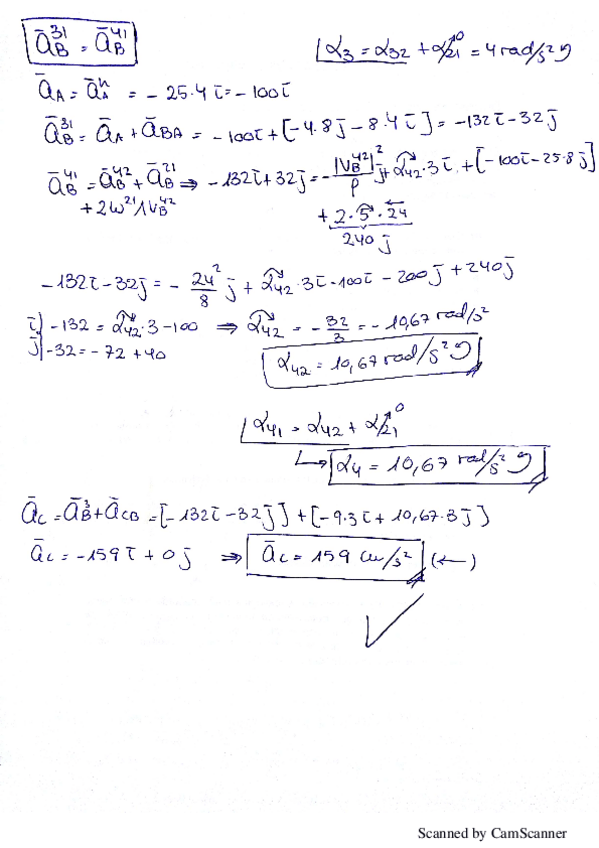 ā_B^31 = ā_B^41
α_3 = α_32 + α_21^0 = 4 rad/s² ↺
ā_A = ā_A^n = - 25·4 ī = - 100ī
ā_B^31 = ā_A + ā_BA = - 100ī + [-4·8 j̄ - 8·4 ī] = -132ī - 32 j̄
ā_B^41 = ā_B^42 + ā_B^21 ⇒ - 132ī + 32j̄ = - |V_B^42|²/ρ j̄ + α_42·3 ī + [-100ī - 25·8 j̄]
+ 2ω^21 ∧ V_B^42 + 2·5·24
240 j̄
- 132ī - 32j̄ = - 24²/8 j̄ + α_42·3ī - 100ī - 200j̄ + 240j̄
ī) -132 = α_42·3 - 100 ⇒ α_42 = - 32/3 = - 10,67 rad/s²
j̄) -32 = - 72 + 40
α_42 = 10,67 rad/s² ↺
α_41 = α_42 + α_21^0
↳ α_4 = 10,67 rad/s² ↺
ā_C = ā_B^3 + ā_CB = [- 132ī - 32j̄] + [-9·3ī + 10,67·3j̄]
ā_C = - 159ī + 0j̄ ⇒ ā_C = 159 cm/s² (←)
Scanned by CamScanner